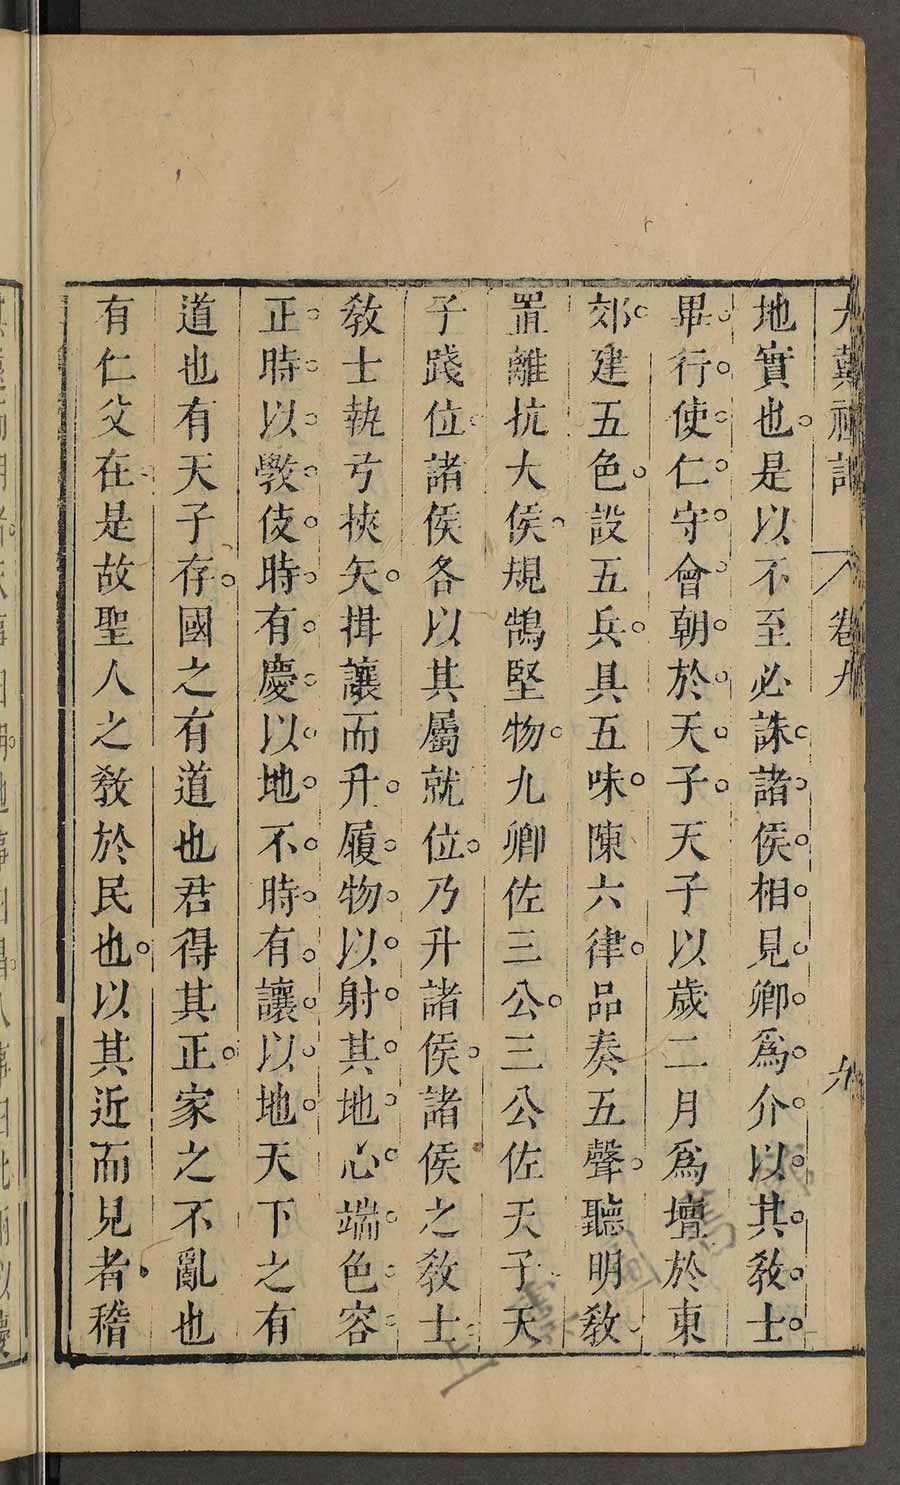 大戴禮記 卷九 九
地實也是以不至必誅諸侯相見卿爲介以其教士
畢行使仁守會朝於天子天子以歲二月爲壇於東
郊建五色設五兵具五味陳六律品奏五聲聽明教
置離抗大侯規鵠堅物九卿佐三公三公佐天子天
子踐位諸侯各以其屬就位乃升諸侯諸侯之教士
教士執弓挾矢揖讓而升履物以射其地心端色容
正時以斆伎時有慶以地不時有讓以地天下之有
道也有天子存國之有道也君得其正家之不亂也
有仁父在是故聖人之教於民也以其近而見者稽